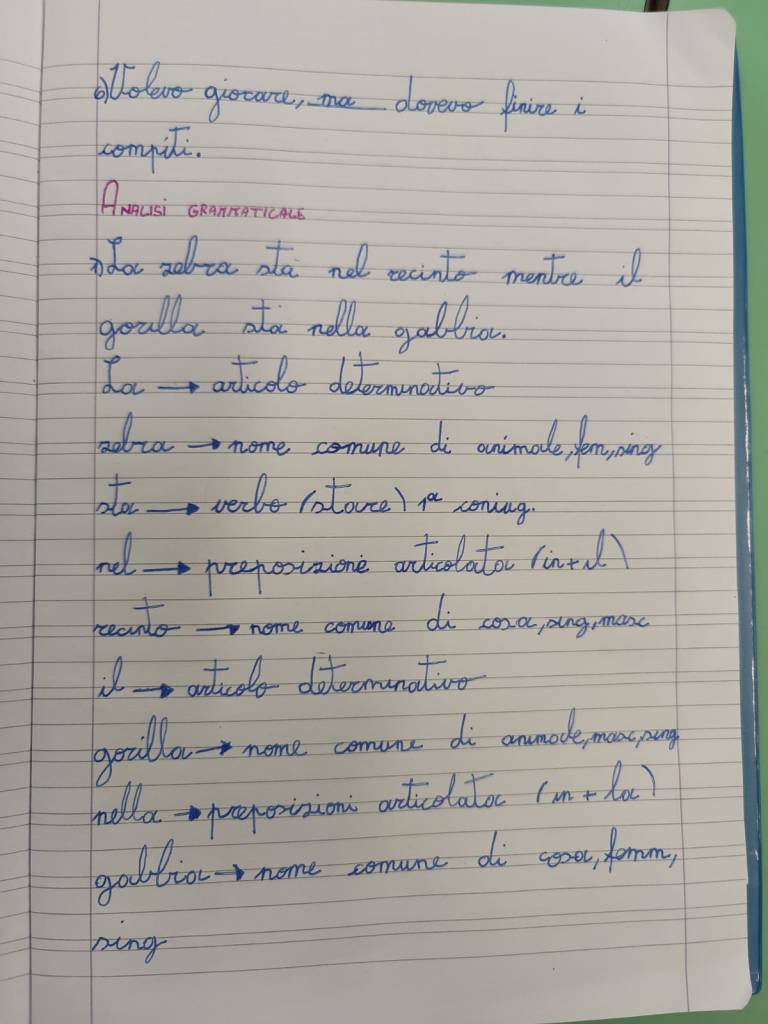 6) Volevo giocare, ma dovevo finire i
compiti.
ANALISI GRAMMATICALE
1) La zebra sta nel recinto mentre il
gorilla sta nella gabbia.
La → articolo determinativo
zebra → nome comune di animale, fem, sing
sta → verbo (stare) 1ª coniug.
nel → preposizione articolata (in+il)
recinto → nome comune di cosa, sing, masc
il → articolo determinativo
gorilla → nome comune di animale, masc, sing
nella → preposizioni articolata (in + la)
gabbia → nome comune di cosa, femm,
sing